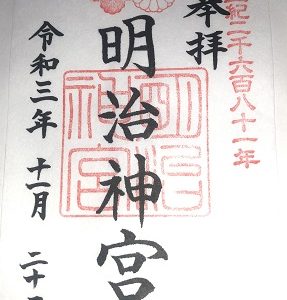 紀二千六百八十一年
奉拝
明治神宮
令和三年 十一月 二十